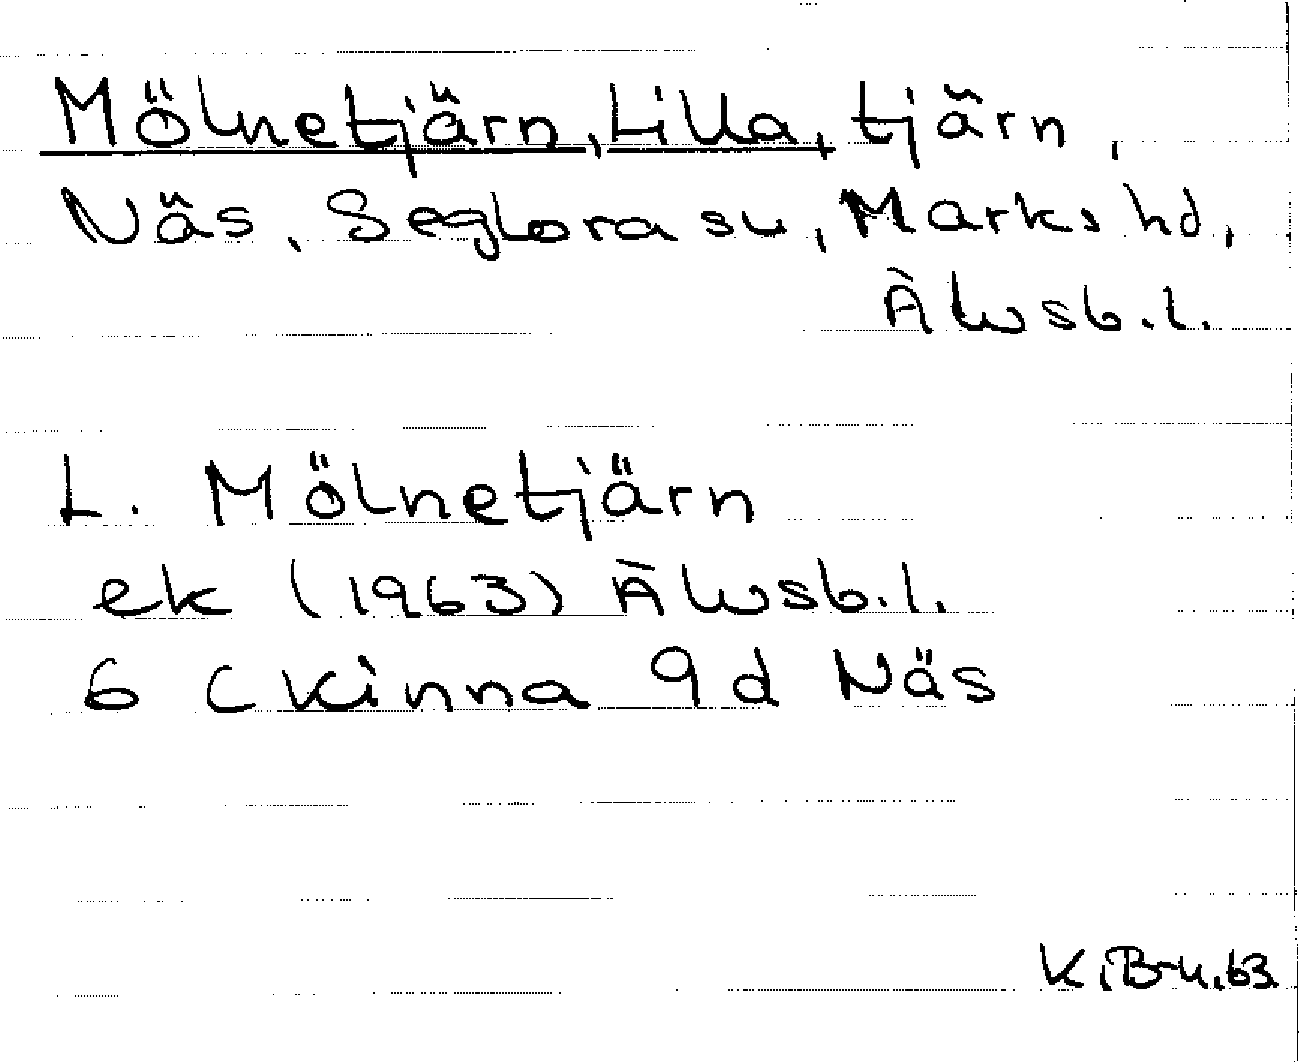 Mölnetjärn, Lilla, tjärn,
Näs, Seglora sn, Marks hd,
Älvsb.l.
L. Mölnetjärn
ek (1963) Älvsb.l.
6 C Kinna 9d Näs